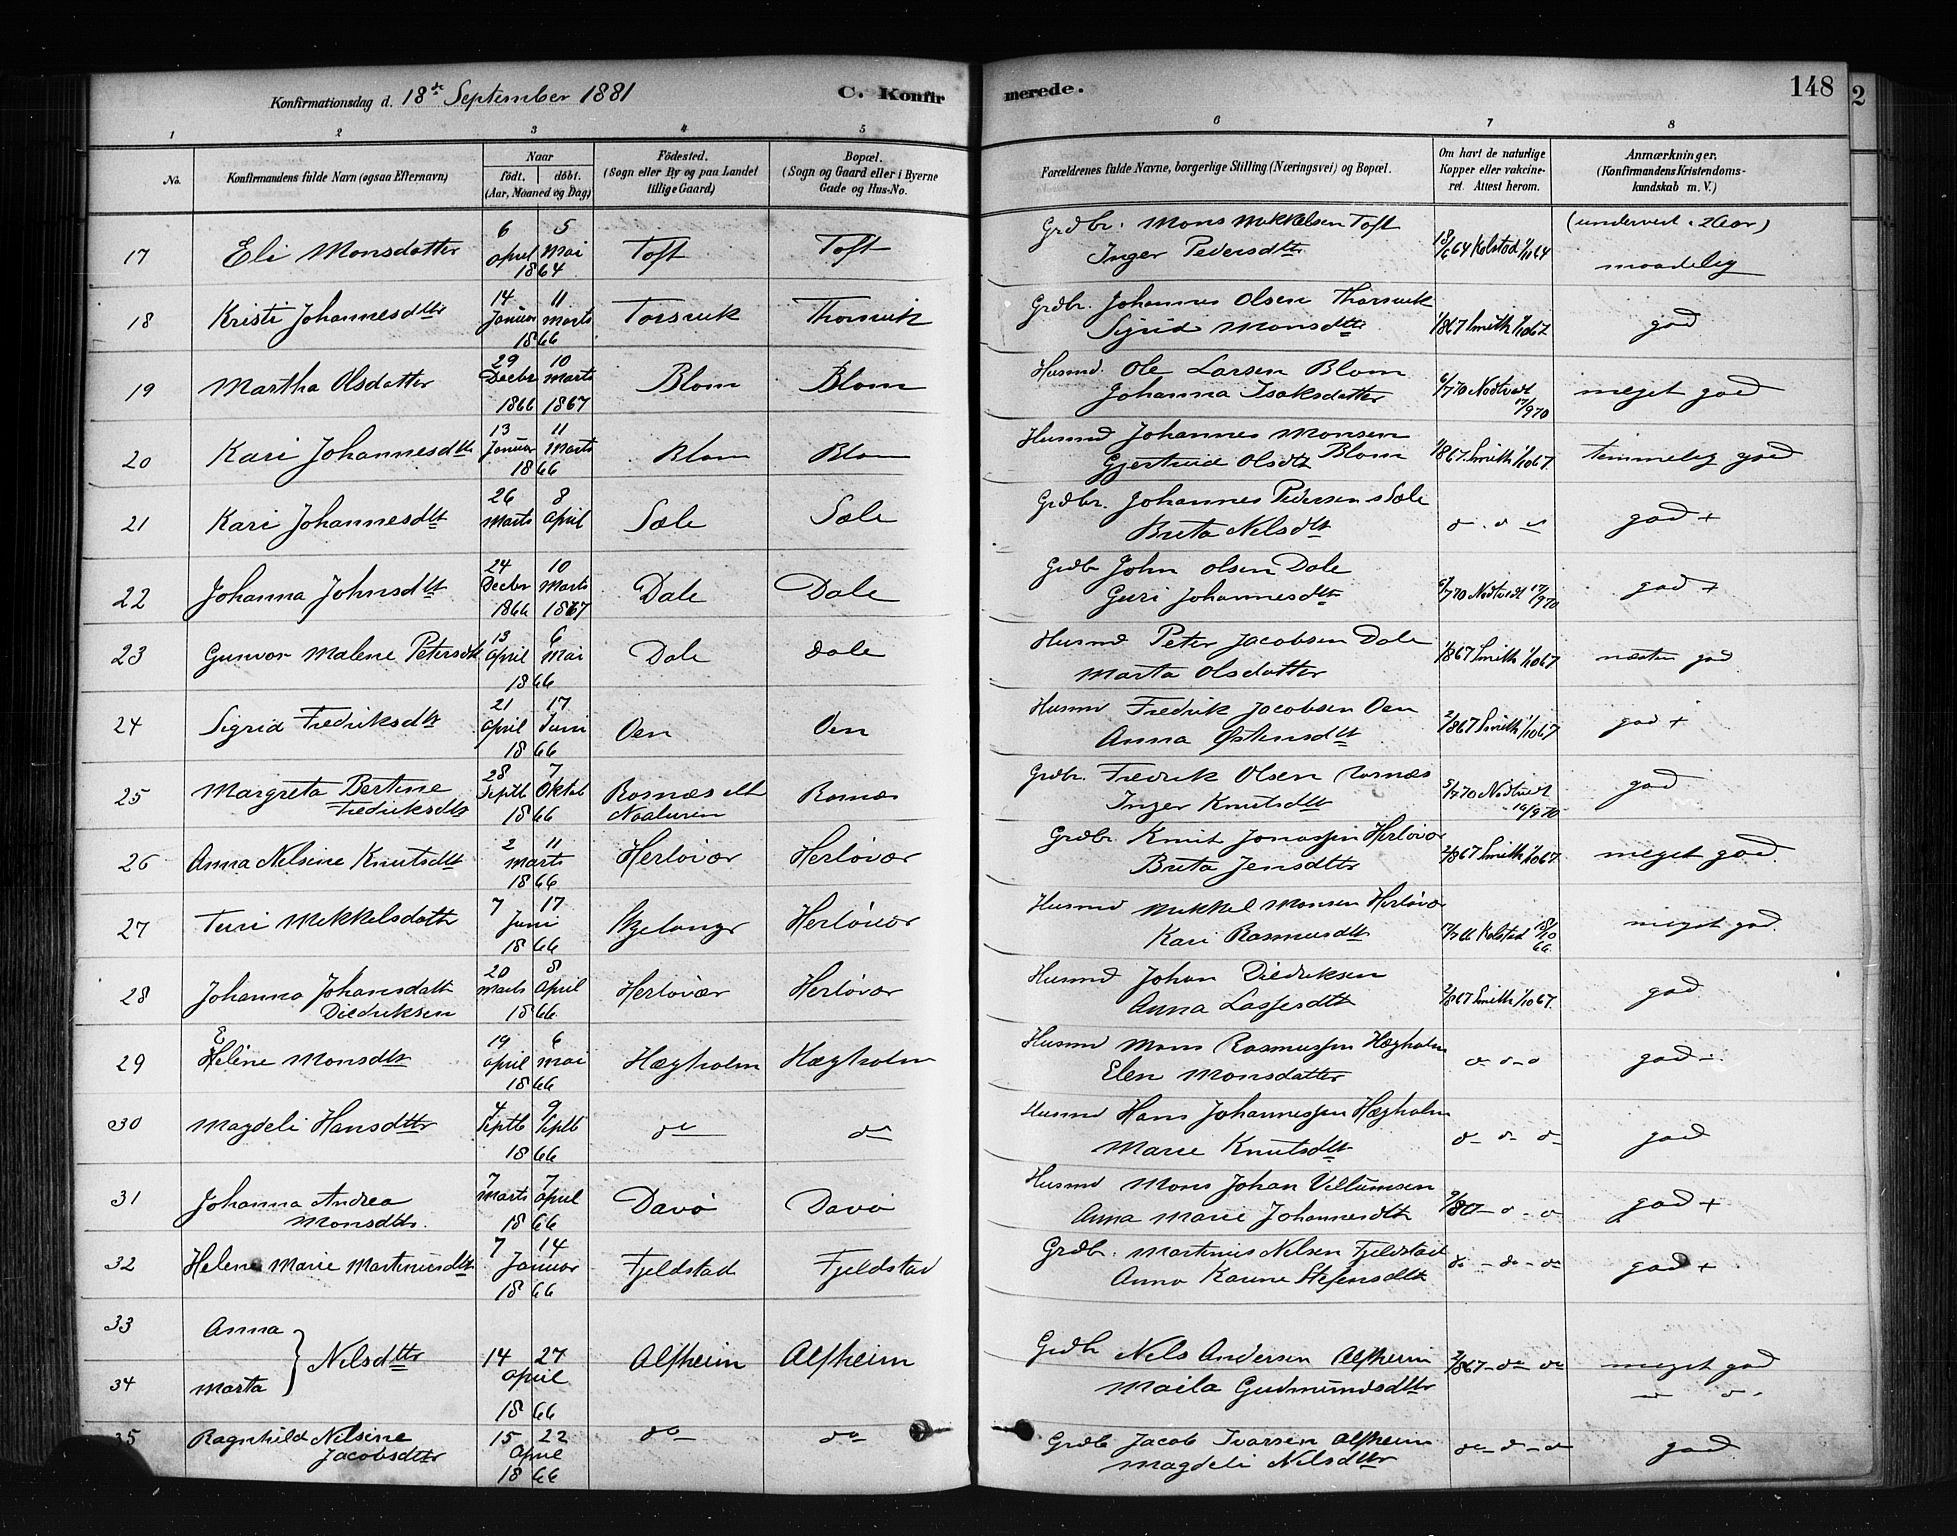 Konfirmationsdag d. 18de September 1881 C. Konfirmerede. 148
2
1 2 3 4 5 6 7 8
No. Konfirmandens fulde Navn (ogsaa Efternavn) Naar født, døbt. (Aar, Maaned og Dag) Fødested. (Sogn eller By og paa Landet tillige Gaard) Bopæl. (Sogn og Gaard eller i Byerne Gade og Hus-No. Forældrenes fulde Navne, borgerlige Stilling (Næringsvei) og Bopæl. Om havt de naturlige Kopper eller vakcineret. Attest herom. Anmærkninger. (Konfirmandens Kristendomskundskab m. V.)
17 Eli Monsdatter 6 April 5 Mai 1864 Toft Toft Grdbr. Mons Mikkelsen Toft Inger Pedersdttr 18/6 64 Kolstad 1/11 64 (undervist 2 Aar) maadelig
18 Kristi Johannesdttr 14 Januar 11 Marts 1866 Torsvik Thorsvik Grdbr. Johannes Olsen Thorsvik Sigrid Monsdttr 1/8 67 Smith 1/10 67 god
19 Martha Olsdatter 29 Decbr 1866 10 Marts 1867 Blom Blom Husmd. Ole Larsen Blom Johanna Isaksdatter 6/7 70 Nodtvedt 17/9 70 meget god
20 Kari Johannesdttr 13 Januar 11 Marts 1866 Blom Blom Husmd Johannes Monsen Blom Gjertrud Olsdtt 1/8 67 Smith 1/10 67 temmelig god
21 Kari Johannesdtt 26 Marts 8 April Sæle Sæle Grdbr. Johannes Pedersen Sæle Brita Nilsdtt god +
22 Johanna Johnsdtt 24 Decbr 1866 10 Marts 1867 Dale Dale Grdb John Olsen Dale Guri Johannesdtr 6/7 70 Nodtvedt 17/9 70 god +
23 Gunvor Malene Petersdtt 13 April 6 Mai 1866 Dale Dale Husmd Peter Jacobsen Dale Marta Olsdatter 1/8 67 Smith 1/10 67 næsten god
24 Sigrid Fredriksdtr 21 April 17 Juni 1866 Oen Oen Husmd Fredrik Jacobsen Oen Anna Østensdtt 2/8 67 Smith 1/10 67 god +
25 Margreta Bertine Fredriksdtr 28 Septb 7 Oktob 1866 Rosnæs Rosnæs Grdbr. Fredrik Olsen Rosnæs Inger Knutsdtt 5/7 70 Nodtvedt 16/9 70 god
26 Anna Nelsine Knutsdtt 2 11 Marts 1866 Herløvær Herløvær Grdbr Knut Jonassen Herløvær Brita Jensdttr 2/8 67 Smith 1/10 67 meget god.
27 Turi Mikkelsdattr 7 17 Juni 1866 Herløvær Husmd Mikkel Monsen Herløvær Kari Rasmusdtt Kolstad meget god.
28 Johanna Johansdatt Diedriksen 20 Marts 8 April 1866 Herløvær Herløvær Husmd Johan Diedriksen Anna Lassesdtt 2/8 67 Smith 1/10 67 god
29 Heline Monsdtr 19 April 6 Mai 1866 Hægholm Hægholm Husmd Mons Rasmussen Hægholm Elen Monsdatter god
30 Magdeli Hansdttr 4 Septb 9 Septb 1866 do do Husmd Hans Johannessen Hægholm Marie Knutsdtt god
31 Johanna Andrea Monsdttr. 7 Marts 7 April 1866 Davø Davø Husmd Mons Johan Villumsen Anna Marie Johannesdtt god +
32 Helene Marie Martinusdtt 7 14 Januar 1866 Fjeldstad Fjeldstad Grdbr. Martinus Nilsen Fjeldstad Anna Karine Stefensdtt do - do - do god +
33 Anna
34 Marta } Nilsdttr 14 27 April 1866 Alfheim Alfheim Grdbr Nils Andersen Alfheim Maila Gudmundsdttr 2/8 67 - do - do meget god
35 Ragnhild Nelsine Jacobsdttr 15 22 April 1866 do do Grdb Jacob Ivarsen Alfheim Magdeli Nilsdttr god